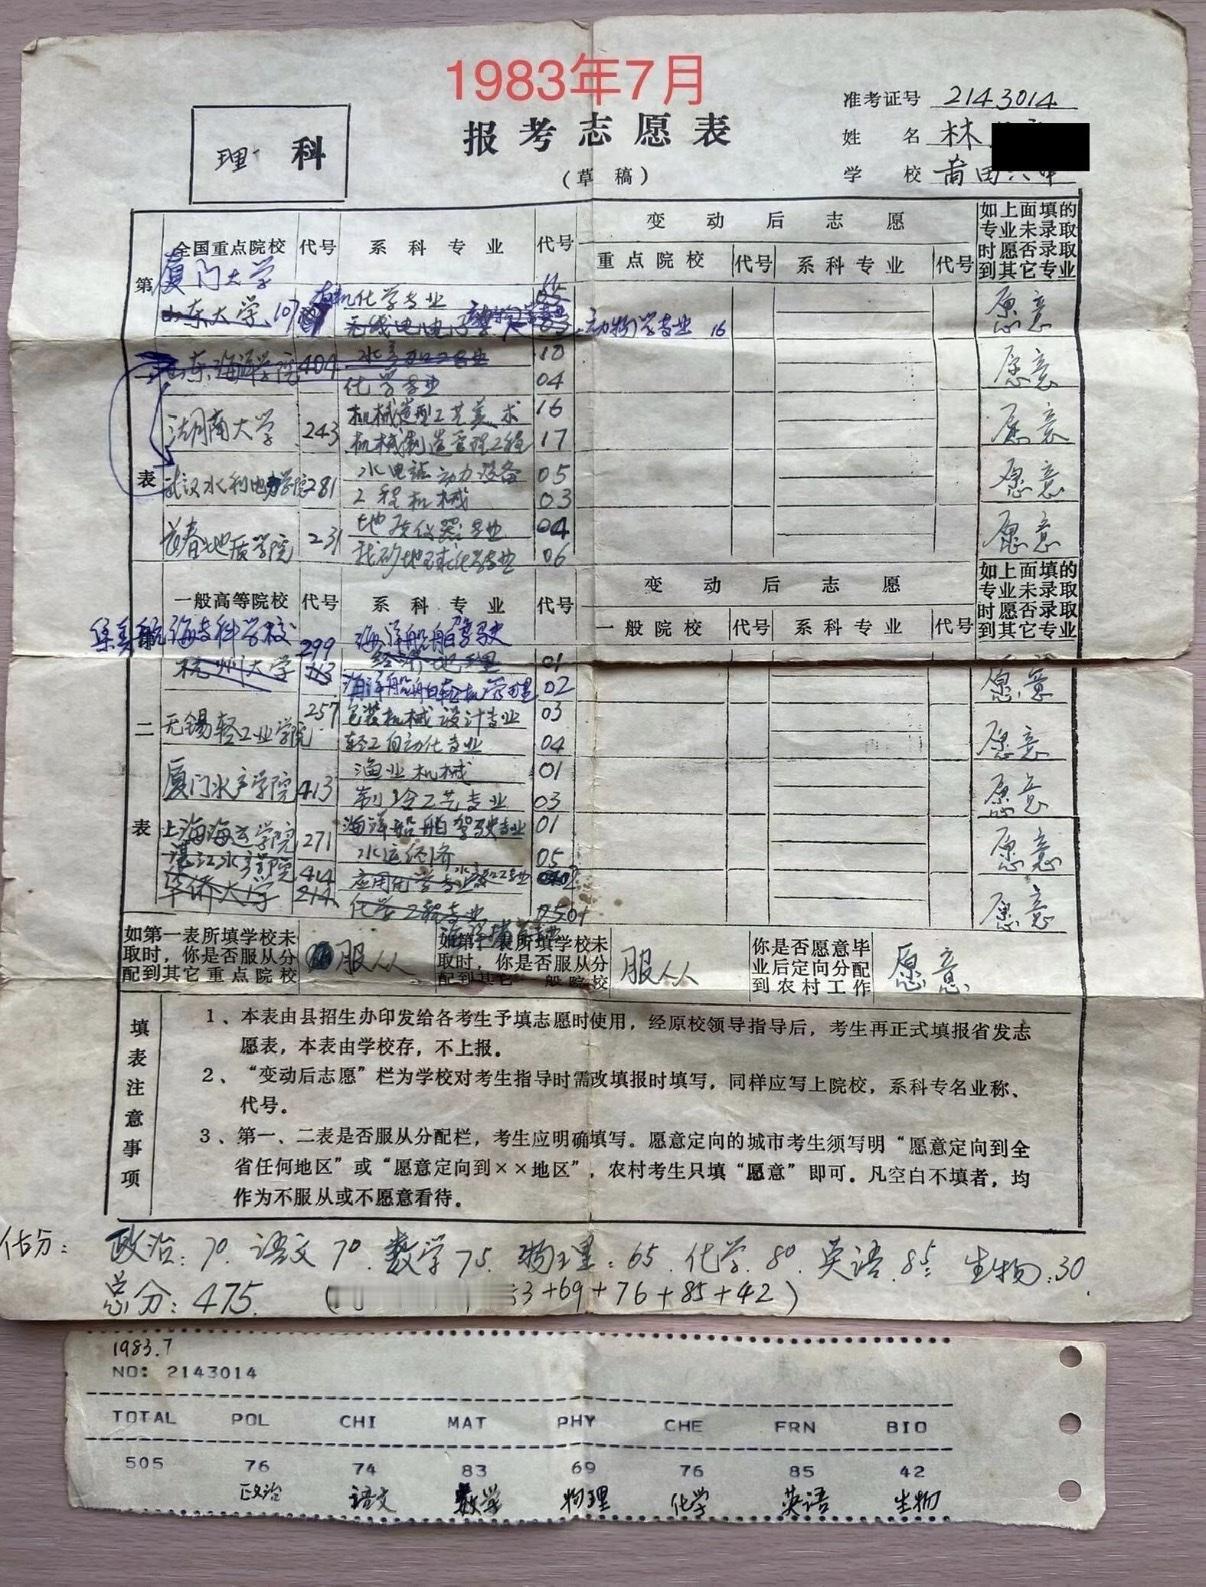 1983年7月
准考证号 2143014
理 科
报考志愿表
姓 名 林
(草稿)
学 校 莆田
全国重点院校 代号 系科专业 代号 变动后志愿 如上面填的专业未录取时愿否录取到其它专业
重点院校 代号 系科专业 代号
第一表
厦门大学
山东大学 107 有机化学专业
无线电电子学 动物学专业 16 愿意
山东海洋学院 404 水产加工专业 10
化学专业 04 愿意
湖南大学 243 机械造型工艺美术 16
机械制造管理工程 17 愿意
武汉水利电力学院 281 水电站动力设备 05
工程机械 03 愿意
长春地质学院 231 地质仪器专业 04
找矿地球化学专业 06 愿意
一般高等院校 代号 系科专业 代号 变动后志愿 如上面填的专业未录取时愿否录取到其它专业
一般院校 代号 系科专业 代号
第二表
集美航海专科学校 299 海洋船舶驾驶
杭州大学 经济地理 01
海洋船舶轮机管理 02 愿意
无锡轻工业学院 257 包装机械设计专业 03
轻工自动化专业 04 愿意
厦门水产学院 413 渔业机械 01
制冷工艺专业 03 愿意
上海海运学院 271 海洋船舶驾驶专业 01
水运经济 05 愿意
湛江水产学院 414
华侨大学 214 应用化学专业
化学工程专业 愿意
如第一表所填学校未取时，你是否服从分配到其它重点院校 服从
如第二表所填学校未取时，你是否服从分配到其它一般院校 服从
你是否愿意毕业后定向分配到农村工作 愿意
填表注意事项
1、本表由县招生办印发给各考生予填志愿时使用，经原校领导指导后，考生再正式填报省发志
愿表，本表由学校存，不上报。
2、“变动后志愿”栏为学校对考生指导时需改填报时填写，同样应写上院校，系科专名业称、
代号。
3、第一、二表是否服从分配栏，考生应明确填写。愿意定向的城市考生须写明“愿意定向到全
省任何地区”或“愿意定向到××地区”，农村考生只填“愿意”即可。凡空白不填者，均
作为不服从或不愿意看待。
估分： 政治：70. 语文 70. 数学 75. 物理：65. 化学. 80. 英语. 85 生物：30
总分：475. ( 3+69+76+85+42)
1983.7
NO: 2143014
TOTAL POL CHI MAT PHY CHE FRN BIO
505 76 74 83 69 76 85 42
政治 语文 数学 物理 化学 英语 生物